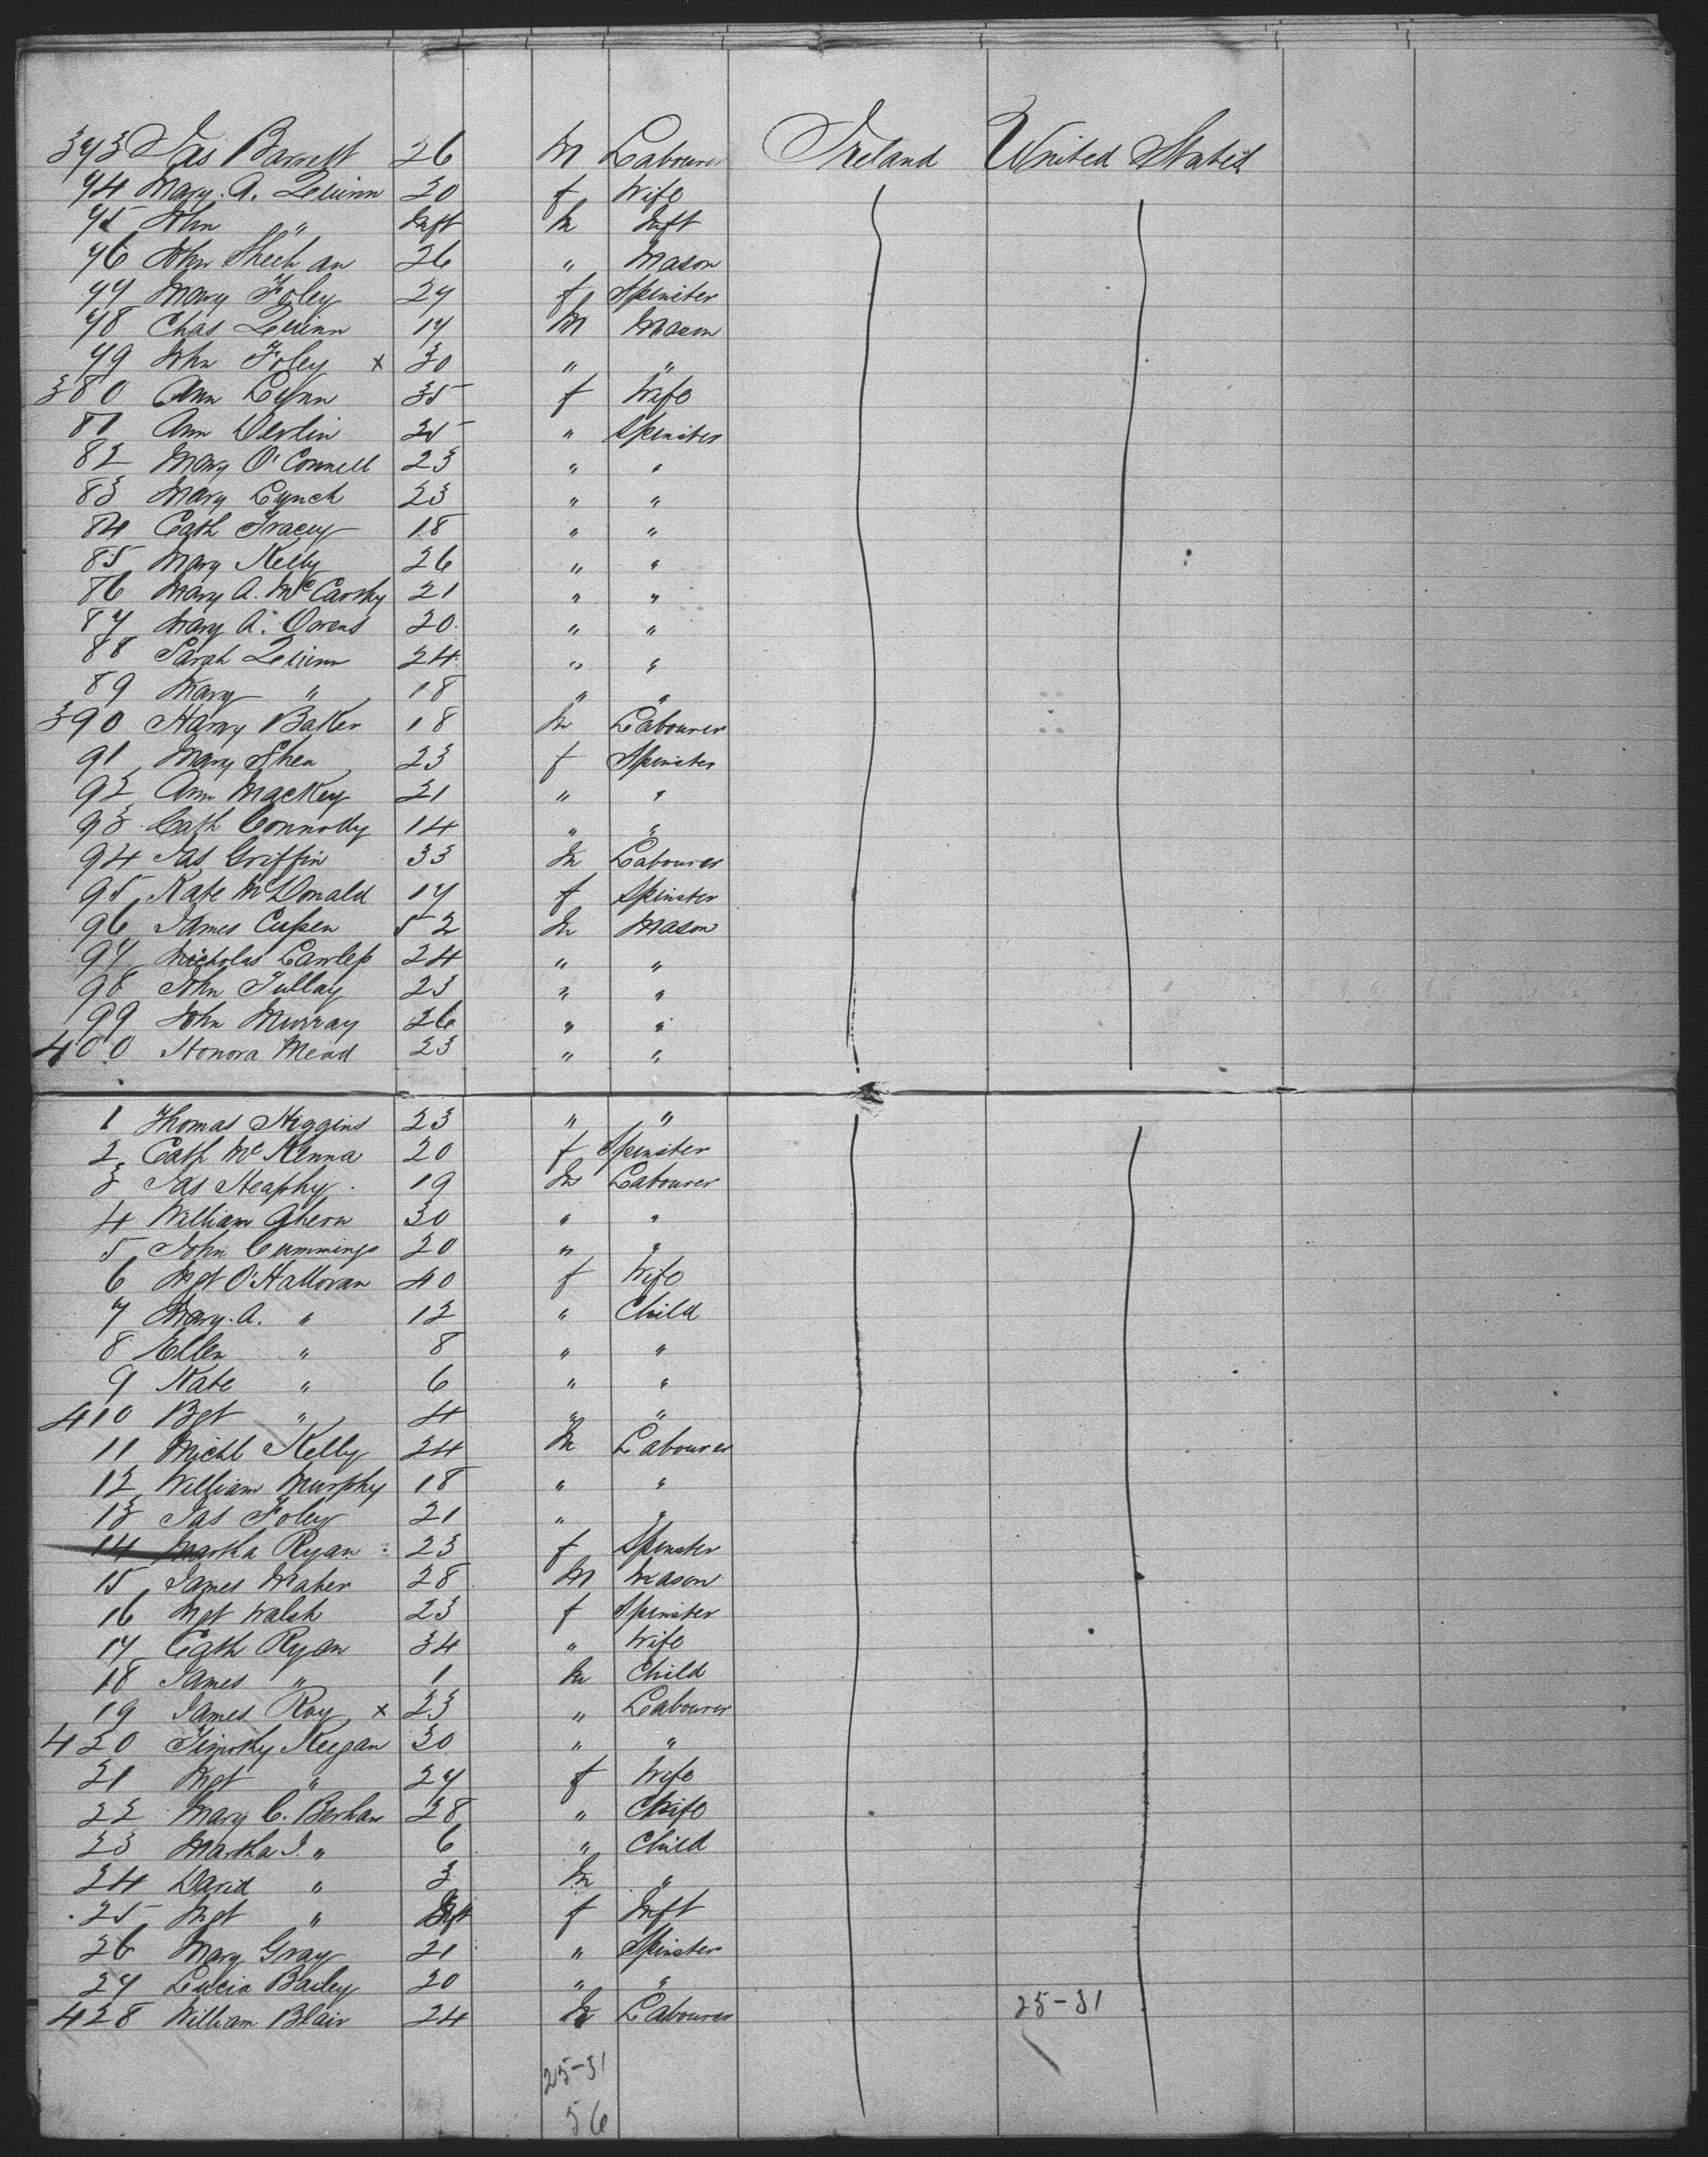 373 Jas Barrett 26 M Labourer Ireland United States
74 Mary. A. Quinn 20 f Wife
75 John " Inft M Inft
76 John Sheehan 26 " Mason
77 Mary Foley 27 f Spinster
78 Chas Quinn 17 M Mason
79 John Foley x 30 " "
380 Ann Lynn 35 f Wife
81 Ann Devlin 25 " Spinster
82 Mary O'Connell 23 " "
83 Mary Lynch 23 " "
84 Cath Tracey 18 " "
85 Mary Kelly 26 " "
86 Mary A. McCarthy 21 " "
87 Mary A. Owens 20 " "
88 Sarah Quinn 24 " "
89 Mary " 18 " "
390 Harry Baker 18 M Labourer
91 Mary Shea 23 f Spinster
92 Ann Mackey 21 " "
93 Cath Connolly 14 " "
94 Jas Griffin 33 M Labourer
95 Kate McDonald 17 f Spinster
96 James 52 M Mason
97 Nicholas 24 " "
98 John Tullay 23 " "
99 John Murray 26 " "
400 Honora Mead 23 " "
1 Thomas Higgins 23 " "
2 Cath McKenna 20 f Spinster
3 Jas Heaphy 19 M Labourer
4 William Ahern 30 " "
5 John Cummings 20 " "
6 Mgt O'Halloran 40 f Wife
7 Mary. A. " 12 " Child
8 Ellen " 8 " "
9 Kate " 6 " "
410 Bgt " 4 " "
11 Michl Kelly 24 M Labourer
12 William Murphy 18 " "
13 Jas Foley 21 " "
14 Martha Ryan 23 f Spinster
15 James Maher 28 M Mason
16 Mgt Walsh 23 f Spinster
17 Cath Ryan 34 " Wife
18 James " 1 M Child
19 James Roy x 23 " Labourer
420 Timothy Keegan 30 " "
21 Mgt " 27 f Wife
22 Mary C. Berhan 28 " Wife
23 Martha J. " 6 " Child
24 David " 3 M "
25 Mgt " Inft f Inft
26 Mary Gray 21 " Spinster
27 Lucia Bailey 20 " "
428 William Blair 24 M Labourer 25-31
25-31
56